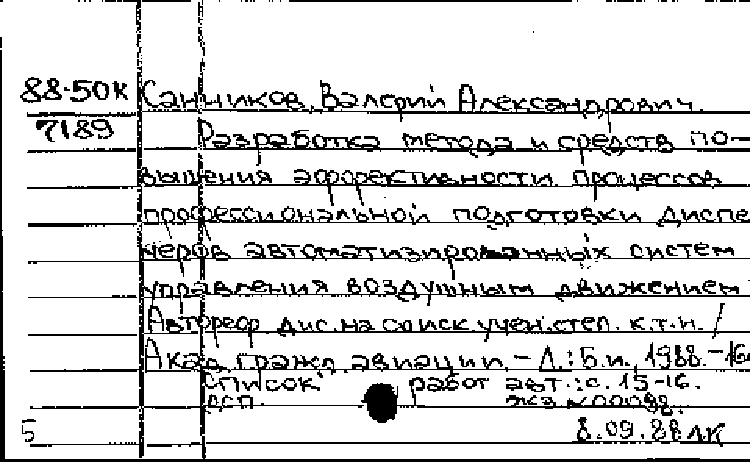 88-50к Санников, Валерий Александрович.
7189 Разработка метода и средств по-
вышения эффективности процессов
профессиональной подготовки диспе
черов автоматизированных систем
управления воздушным движением
Автореф. дис. на соиск. учен. степ. к.т.н. /
Акад. гражд. авиации. - Л.: Б.и., 1988. - 16
Список работ авт.: с. 15-16.
ДСП. экз N 00088.
5 8.09.88 ЛК